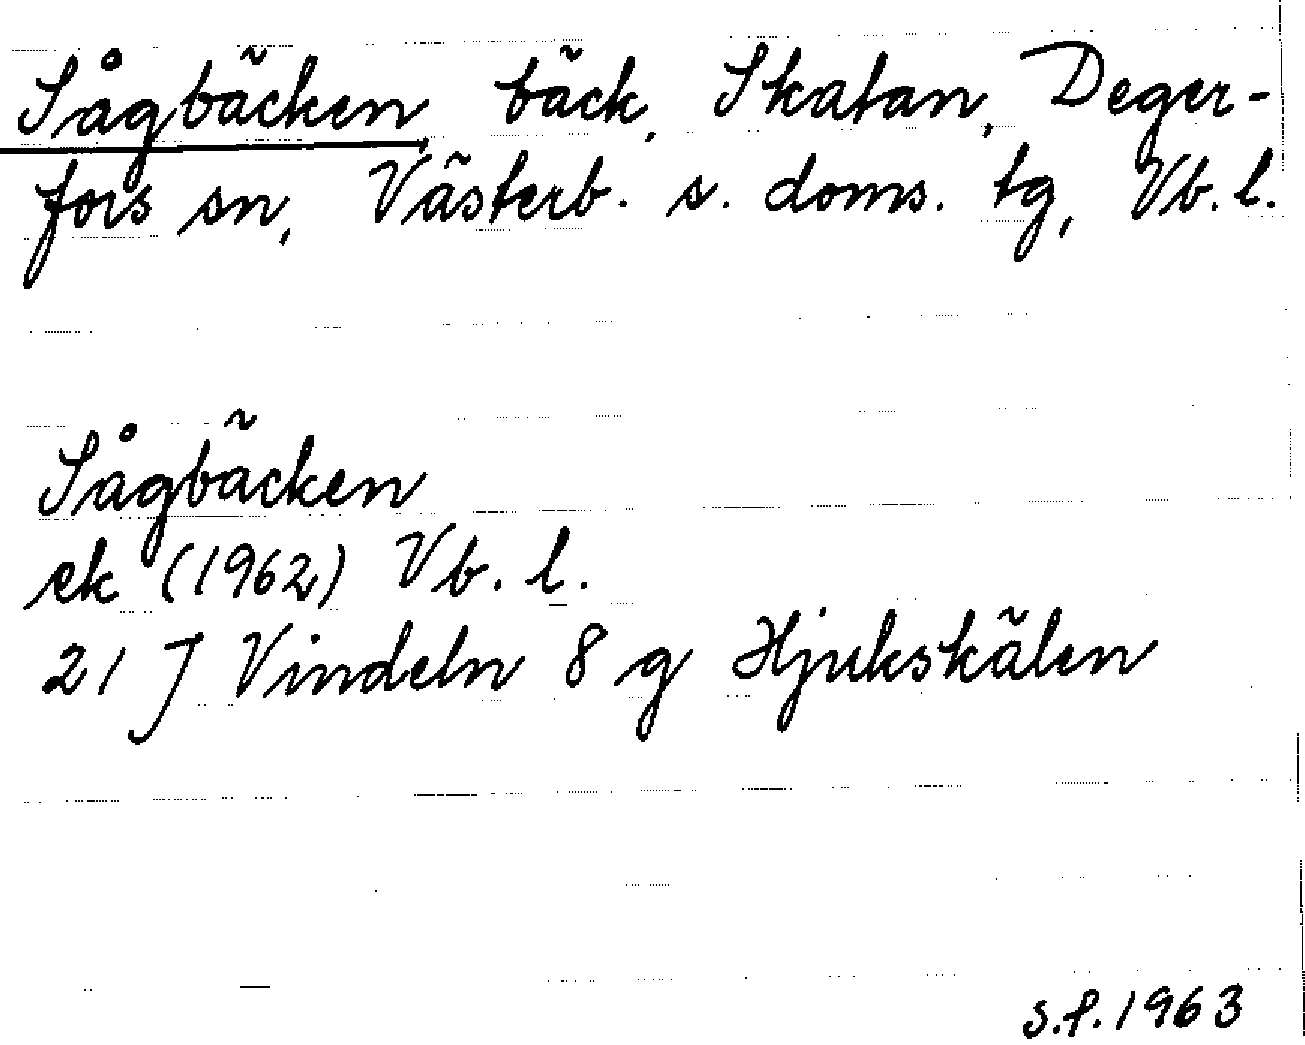 Sågbäcken, bäck, Skatan, Deger-
fors sn, Västerb. s. doms. tg, Vb. l.
Sågbäcken
ek (1962) Vb. l.
21 J Vindeln 8 g Hjukskälen
s.f. 1963